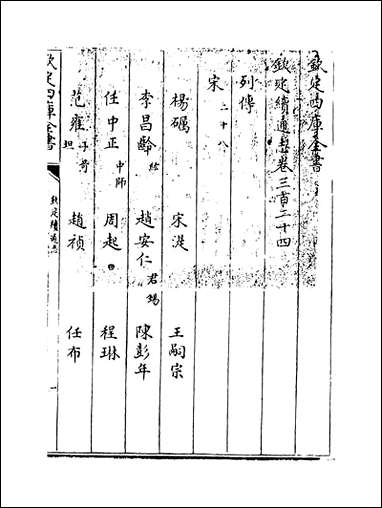 欽定四庫全書
欽定續通志卷三百二十四
列傳
宋二十八
楊礪 宋湜 王嗣宗
李昌齡 紘 趙安仁 君錫 陳彭年
任中正 中師 周起 程琳
范雍 子奇 坦 趙稹 任布
欽定四庫全書 欽定續通志 一